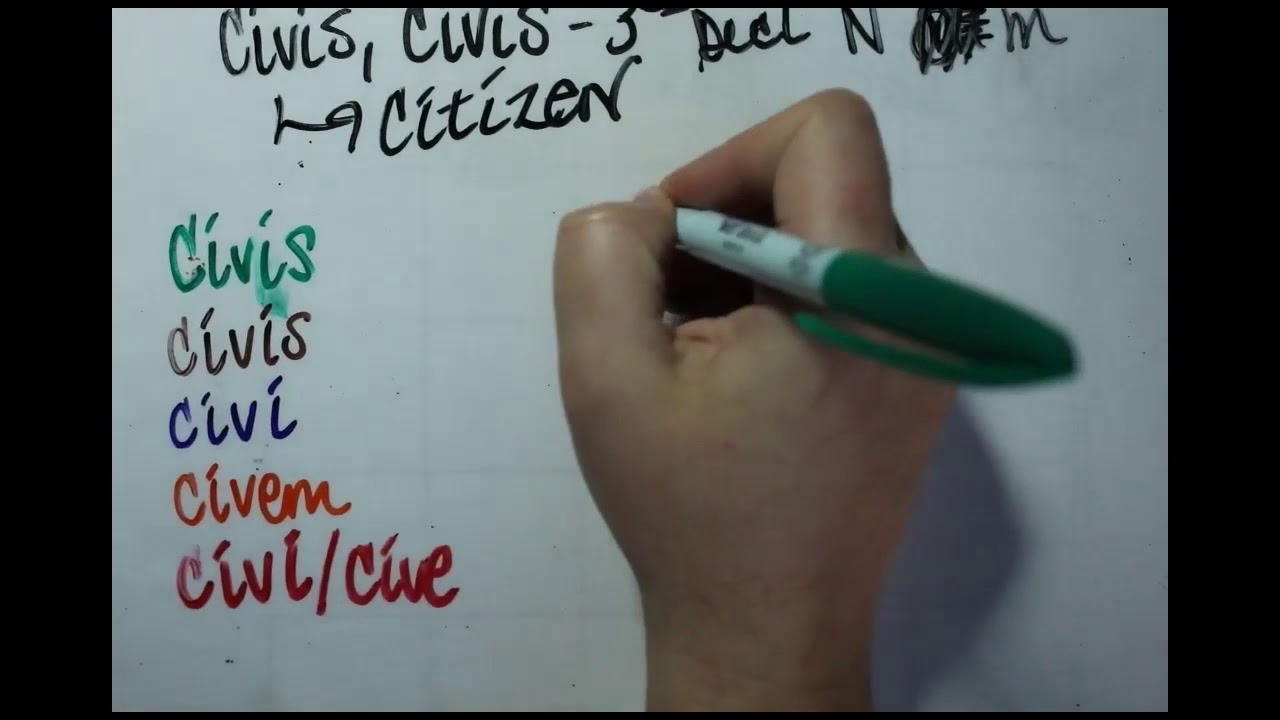 civis, civis - 3rd Decl N m
↳ citizen
civis
civis
civi
civem
civi/cive